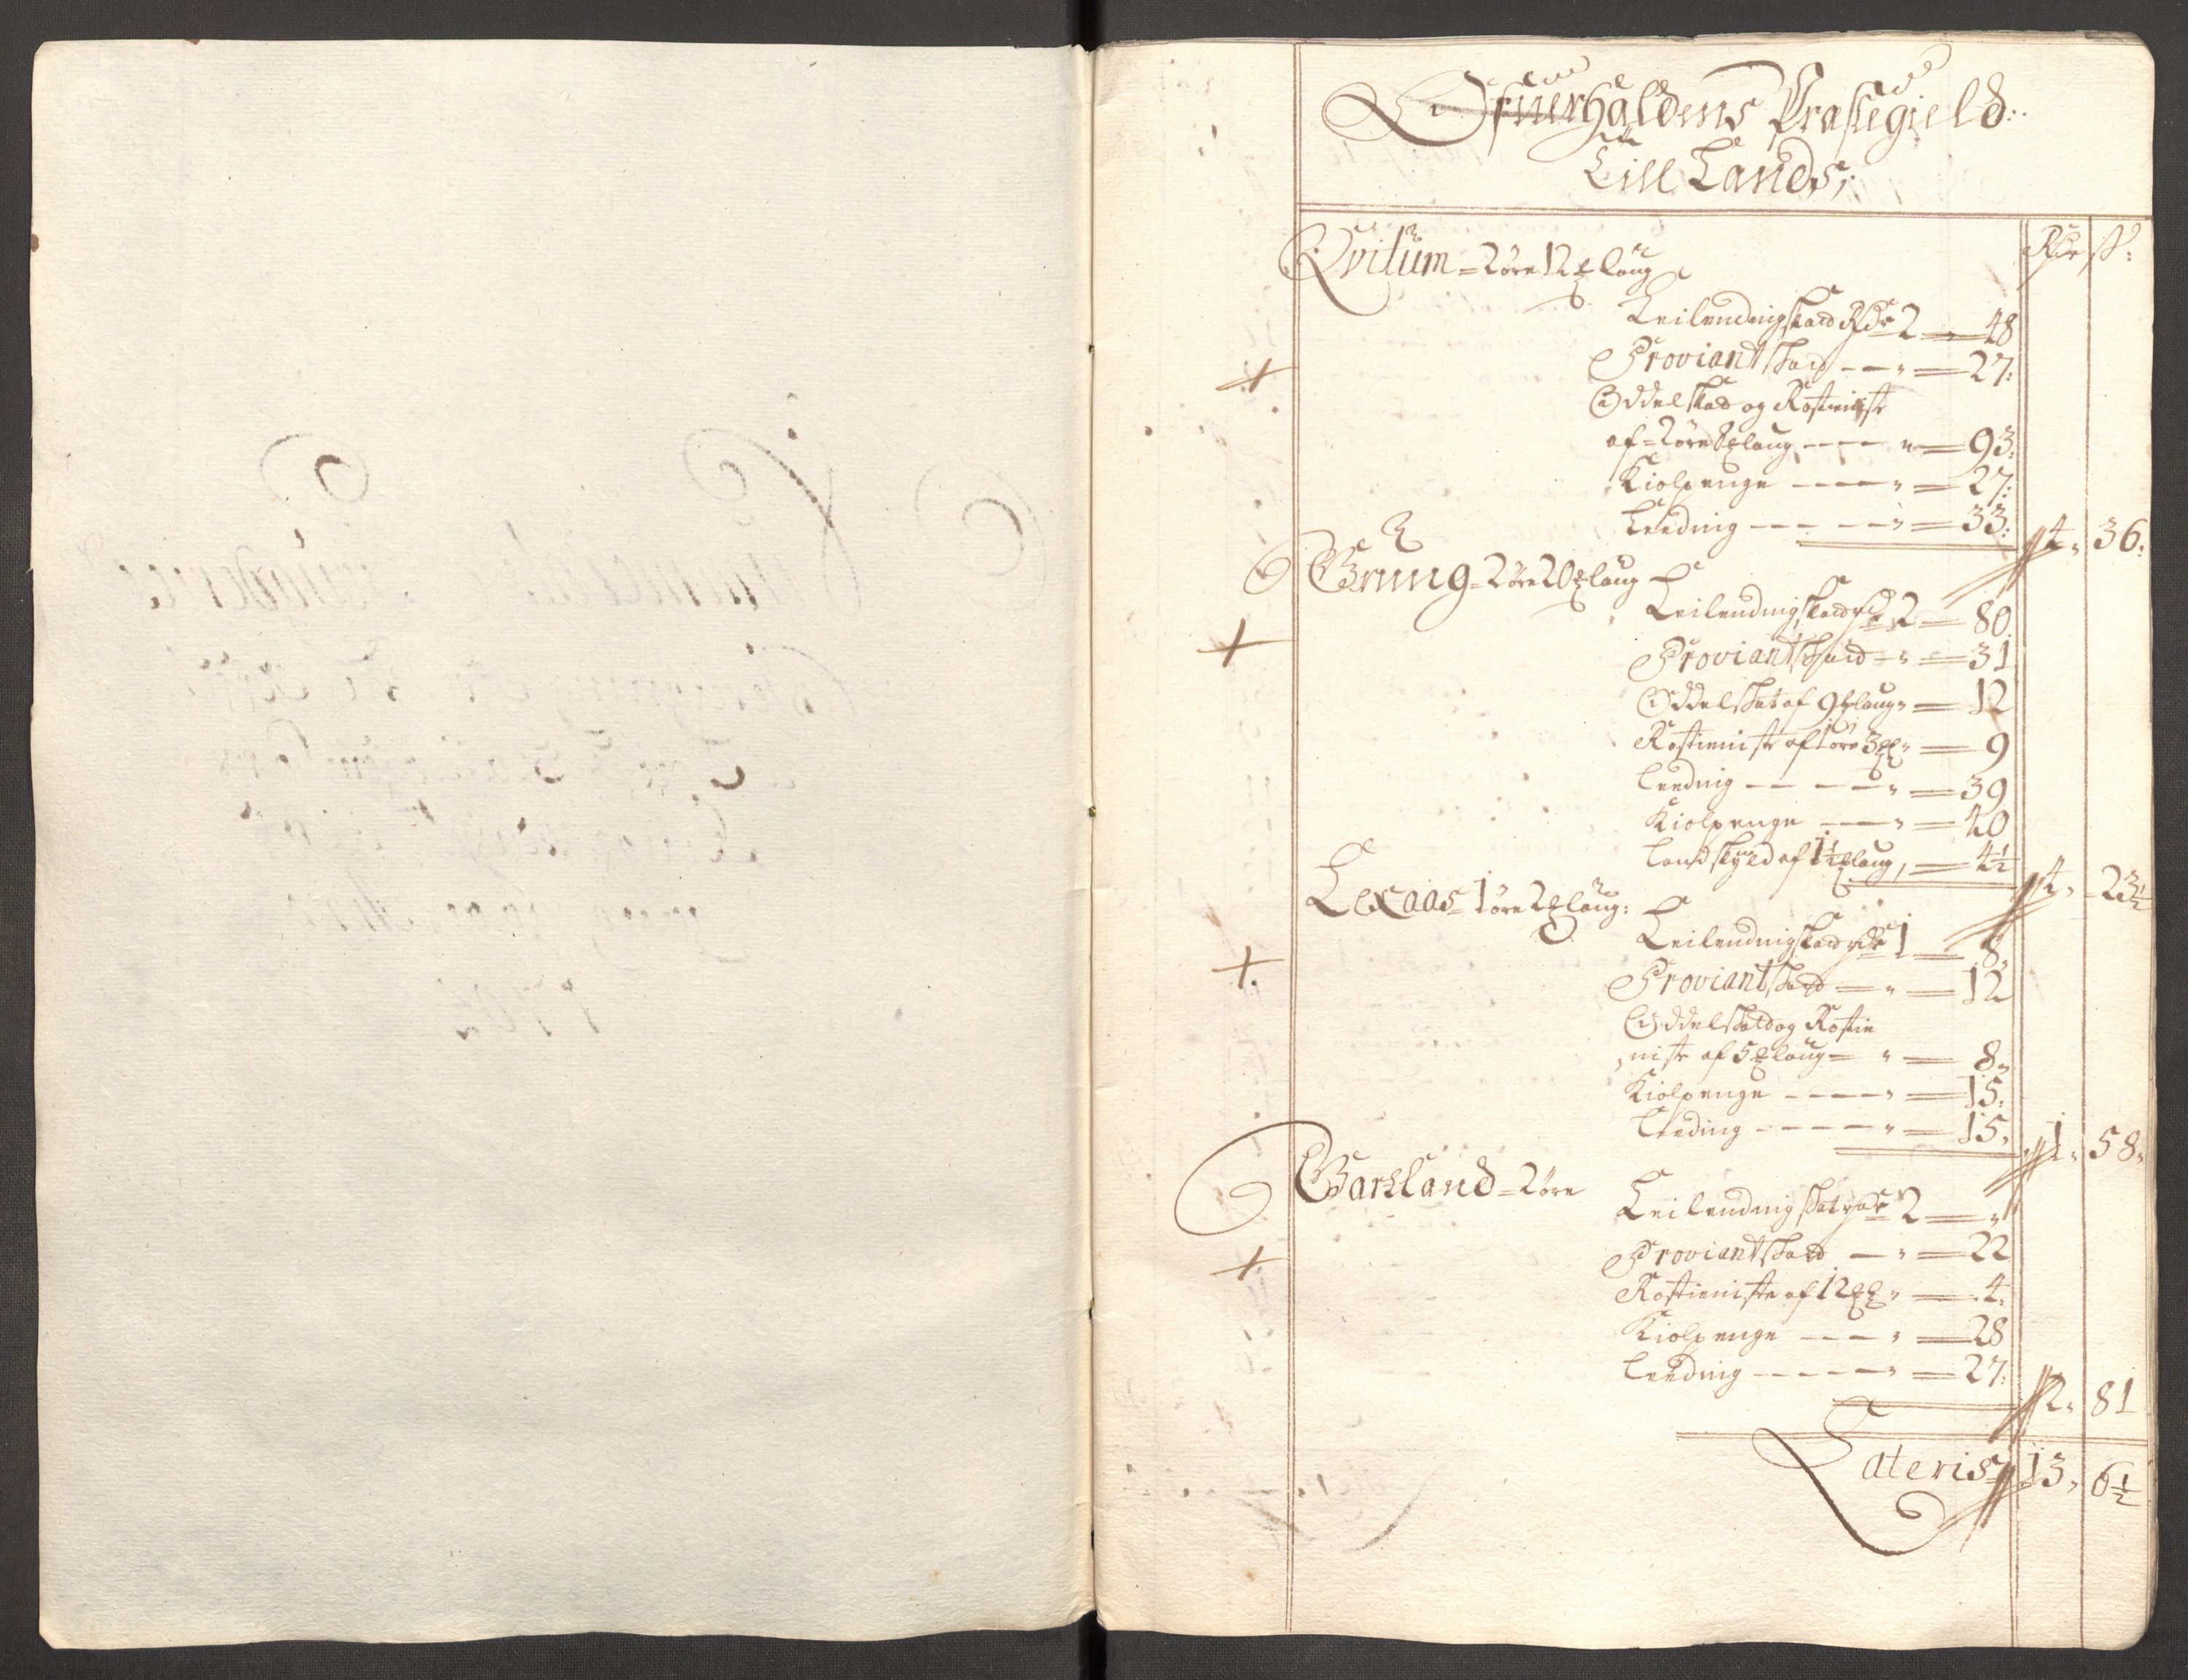 Ofuerhaldens Præstegield:
Till Lands;
Rdr ß:
Qvitum = 2 øre 12 ₰laug
Leilendingskatt Rdr 2 = 48
Proviantskatt — „ = 27:
Oddelskat og Rostieniste
af = 2 øre 8 ₰laug — „ = 93:
Kiolpenge — „ = 27:
Leeding — „ = 33: 4. 36:
Grung = 2 øre 20 ₰laug
Leilendingskatt rdr 2 = 80
Proviantskatt — „ = 31
Oddelskat af 9 ₰laug „ = 12
Rostieniste af 1 øre 3 ₰l „ = 9
Leeding — „ = 39
Kiolpenge — „ = 40
Landskyld af 1½ ₰laug, = 4½ 4. 23½
Lexaas = 1 øre 2 ₰laug:
Leilendingskatt rdr 1 = 8,
Proviantskatt — „ = 12
Oddelskatt og Rostie
niste af 5 ₰laug = „ = 8,
Kiolpenge — „ = 15:
Leeding — „ = 15, 1. 58,
Gartland = 2 øre
Leilendingskat rdr 2 = „
Proviantskatt — „ = 22
Rostieniste af 12 ₰l „ = 4:
Kiolpenge — „ = 28
Leeding — „ = 27: 2. 81
Lateris 13, 6½